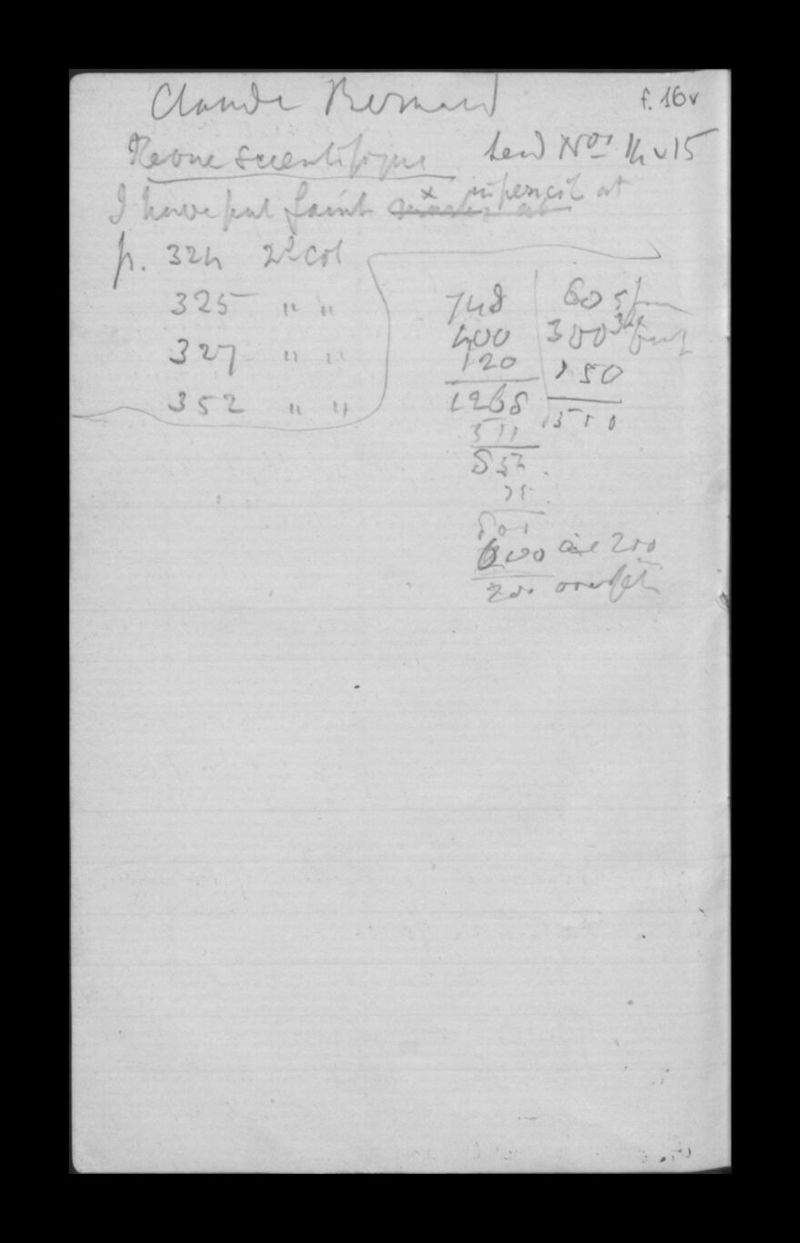 Claude Bernard
f. 16v
Revue Scientifique Send Nos 14 v 15
I have put faint x in pencil at
p. 324 2d col
325 " "
327 " "
352 " "
748
400
120
1268
511
857
75
801
600 are 200
200
605
300
150
1510